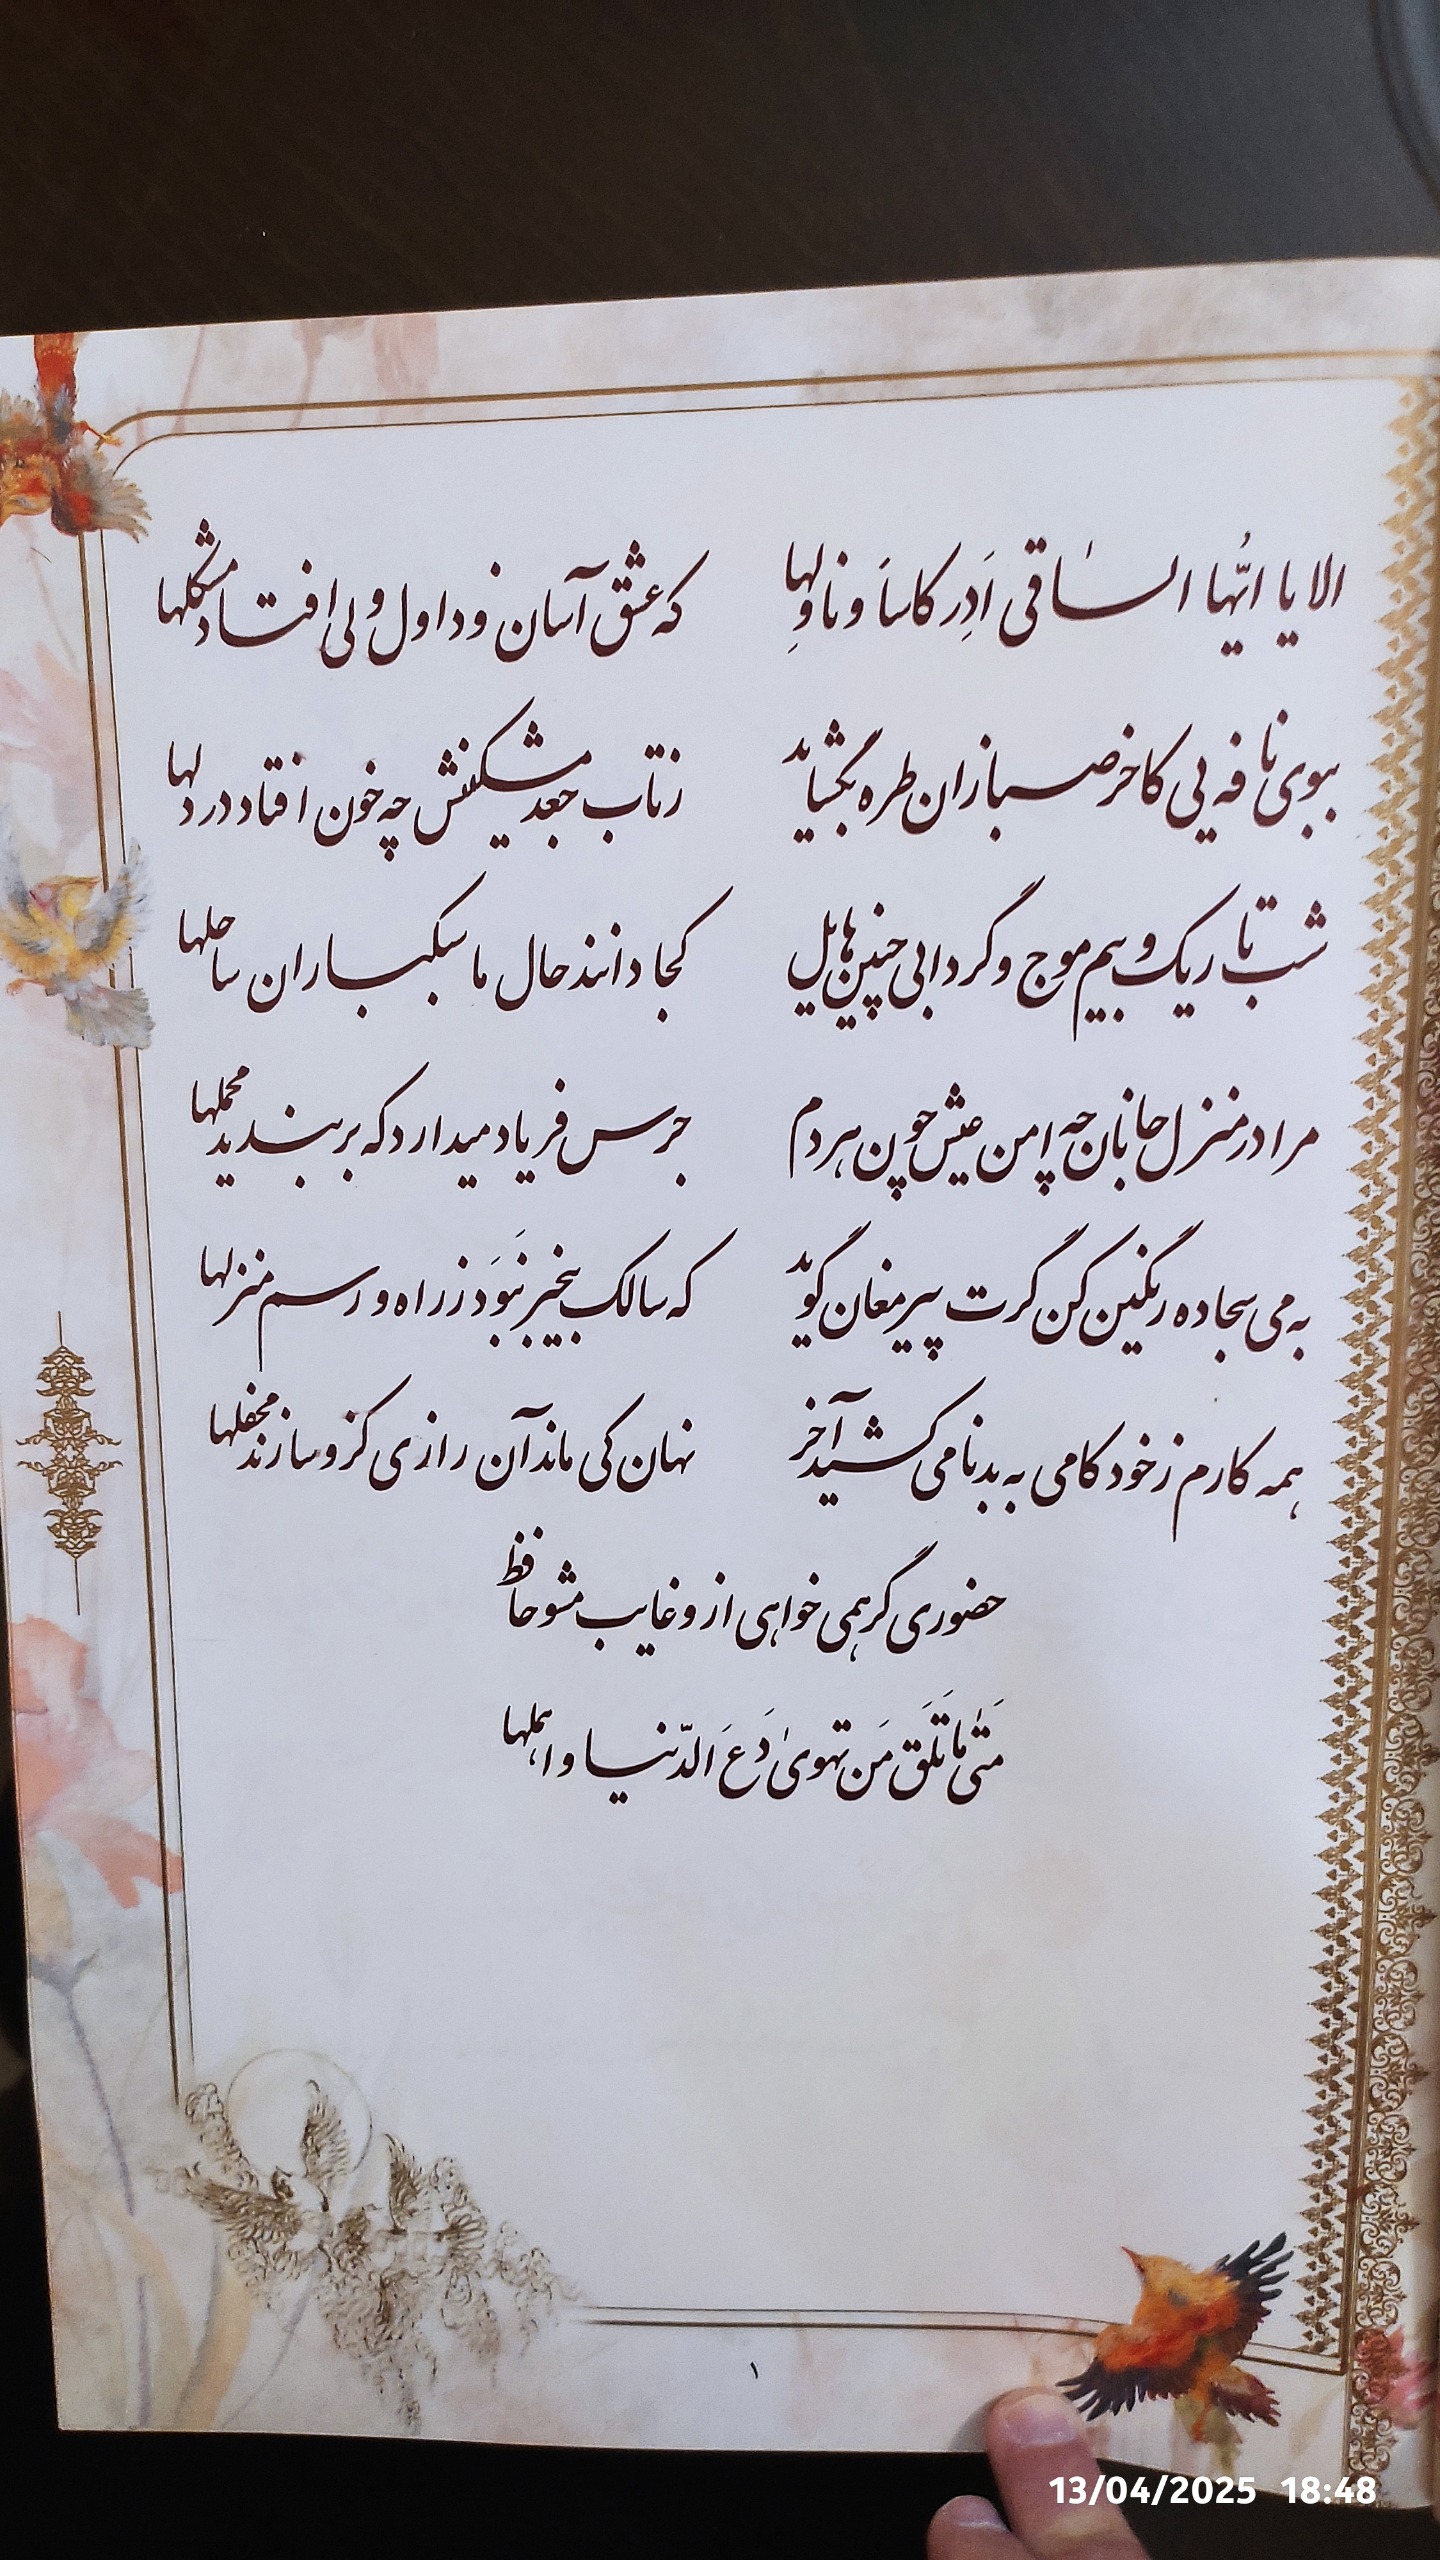 الا یا ایُّها السّاقی اَدِر کاساً و ناوِلها که عشق آسان نمود اول ولی افتاد مشکلها
ببوی نافه‌یی کاخر صبا زان طره بگشاید ز تاب جعد مشکینش چه خون افتاد در دلها
شب تاریک و بیم موج و گردابی چنین هایل کجا دانند حال ما سبکباران ساحلها
مرا در منزل جانان چه امن عیش چون هر دم جرس فریاد میدارد که بربندید محملها
به می سجاده رنگین کن گرت پیر مغان گوید که سالک بیخبر نَبوَد ز راه و رسم منزلها
همه کارم ز خود کامی به بدنامی کشید آخر نهان کی ماند آن رازی کزو سازند محفلها
حضوری گر همی خواهی ازو غایب مشو حافظ
مَتیٰ ما تَلقَ مَن تهویٰ دَعَ الدّنیا و اهملها
۱
13/04/2025 18:48